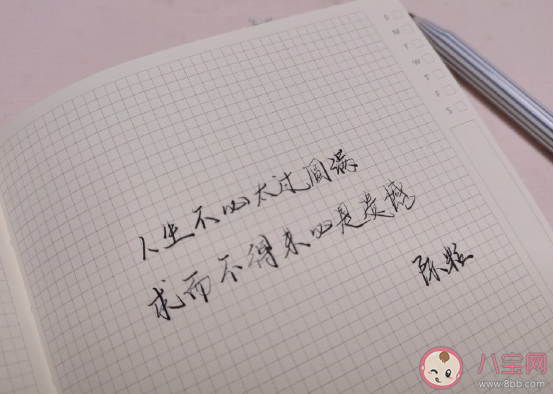 S
M
T
W
T
F
S
人生不必太过圆满
求而不得未必是遗憾
陈粒
八宝网
www.8bb.com